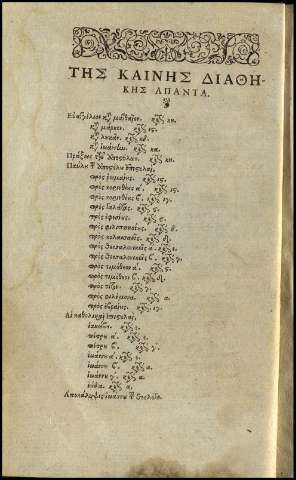 ΤΗΣ ΚΑΙΝΗΣ ΔΙΑΘΗ-
ΚΗΣ ΑΠΑΝΤΑ.
Εὐαγγέλιον κτ̃ ματθαῖον. κεφ. κη.
κτ̃ μάρκον. κεφ. ις.
κτ̃ λουκᾶν. κεφ. κδ.
κτ̃ ἰωάννην. κεφ. κα.
Πράξεις τῶν ἀποστόλων. κεφ. κη.
Παύλου τ̃ ἀποστόλου ἐπιστολαί.
πρὸς ῥωμαίους. κεφ. ις.
πρὸς κορινθίους α. κεφ. ις.
πρὸς κορινθίους ϛ. κεφ. ιγ.
πρὸς γαλάτας. κεφ. ϛ.
πρὸς ἐφεσίους. κεφ. ϛ.
πρὸς φιλιππησίους. κεφ. δ.
πρὸς κολασσαεῖς. κεφ. δ.
πρὸς θεσσαλονικεῖς α. κεφ. ε.
πρὸς θεσσαλονικεῖς ϛ. κεφ. γ.
πρὸς τιμόθεον α. κεφ. ϛ.
πρὸς τιμόθεον ϛ. κεφ. δ.
πρὸς τίτον. κεφ. γ.
πρὸς φιλήμονα. κεφ. α.
πρὸς ἑβραίους. κεφ. ιγ.
Αἱ καθολικαὶ ἐπιστολαί.
ἰακώβου. κεφ. ε.
πέτρου α. κεφ. ε.
πέτρου ϛ. κεφ. γ.
ἰωάννου α. κεφ. ε.
ἰωάννου ϛ. κεφ. α.
ἰωάννου γ. κεφ. α.
ἰούδα. κεφ. α.
Ἀποκάλυψις ἰωάννου τ̃ θεολόγου.